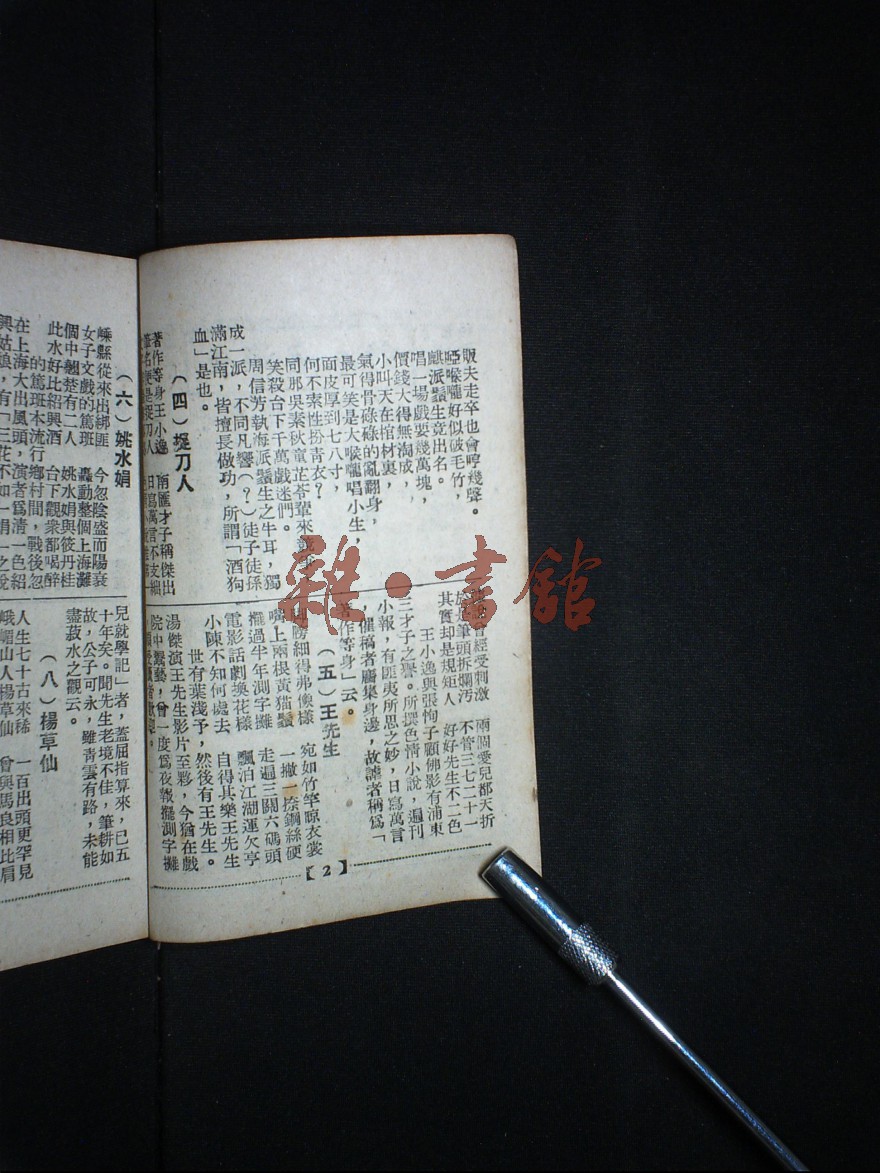 販夫走卒也會哼幾聲。
啞喉嚨好似破毛竹，
麒派鬚生竟出名。
唱一場戲要幾萬塊，
價錢大得無淘成，
小叫天在棺材裏，
氣得骨碌碌的亂翻身，
最可笑是大喉嚨唱小生，
面皮厚到七八寸，
何不索性扮青衣？
同那吳素秋童芷苓輩來
笑殺台下千萬戲迷們。
周信芳執海派鬚生之牛耳，獨
成一派，不同凡響（？）徒子徒孫
滿江南，皆擅長做功，所謂「酒狗
血」是也。
（四）捉刀人
著作等身王小逸　兩匯才子稱傑出
日寫萬言不支
曾經受刺激　兩關愛兒都夭折
筆頭拆爛污　不管三七二十一
其實却是規矩人　好好先生不二色
王小逸與張恂子顧佛影有浦東
三才子之譽。所撰色情小說，遍刊
小報，有匪夷所思之妙，日寫萬言
，催稿者麕集身邊，故謔者稱爲「
著作等身」云。
（五）王先生
細得弗像樣　宛如竹竿晾衣裳
嘴上兩根黃猫鬚　一撇一捺鋼絲硬
擺過半年測字攤　走遍三關六碼頭
電影話劇換花樣　飄泊江湖運欠亨
小陳不知何處去　自得其樂王先生
世有葉淺予，然後有王先生。
湯傑演王先生影片至夥，今猶在戲
院中鬻藝，曾一度爲夜報擺測字攤
（六）姚水娟
嵊縣從來出綁匪　今忽陰盛而陽衰
女子文戲的篤班　轟動整個上海灘
個中翹楚有二人　姚水娟與筱丹桂
此水好比紹興酒　台下觀衆都喝醉
的篤班本流行鄉村間，戰後忽
在上海大出風頭，演者爲清一色紹
興姑娘，有「三花不如一娟」之
兒就學記」者，蓋屈指算來，已五
十年矣。聞先生老境不佳，筆耕如
故，公子可永，雖青雲有路，未能
盡菽水之觀云。
（八）楊草仙
人生七十古來稀　一百出頭更罕見
峨嵋山人楊草仙　曾與馬良相比肩
【2】
雜·書館